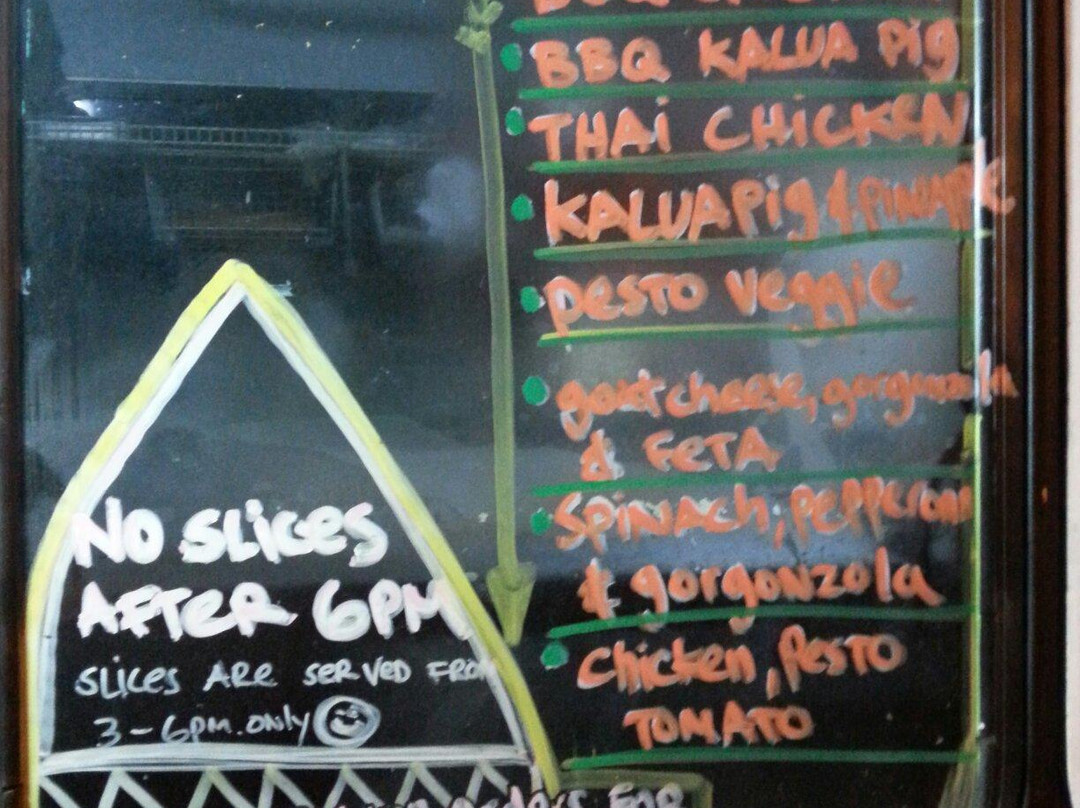 BBQ
BBQ KALUA Pig
THAI CHICKEN
KALUA Pig & PINAPPLE
Pesto Veggie
goat cheese, gorgonzola
& FeTA
Spinach, pepperoni
& gorgonzola
Chicken, Pesto
TOMATO
No SLices
AFTeR 6PM
SLiCeS ARe SeRVeD FROM
3-6pm. only
orders FOR